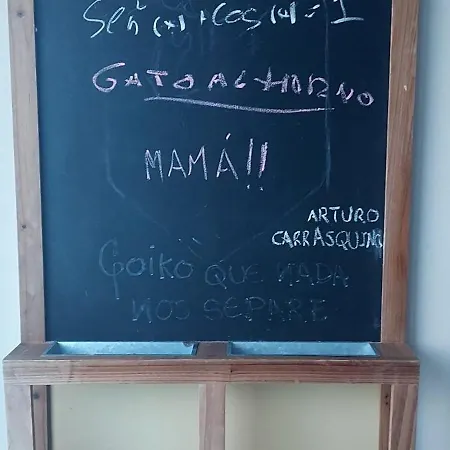 Sen²(x)+cos²(x)=1
GATO AL HORNO
MAMÁ!!
ARTURO
CARRASQUING
Goiko QUE NADA
NOS SEPARE